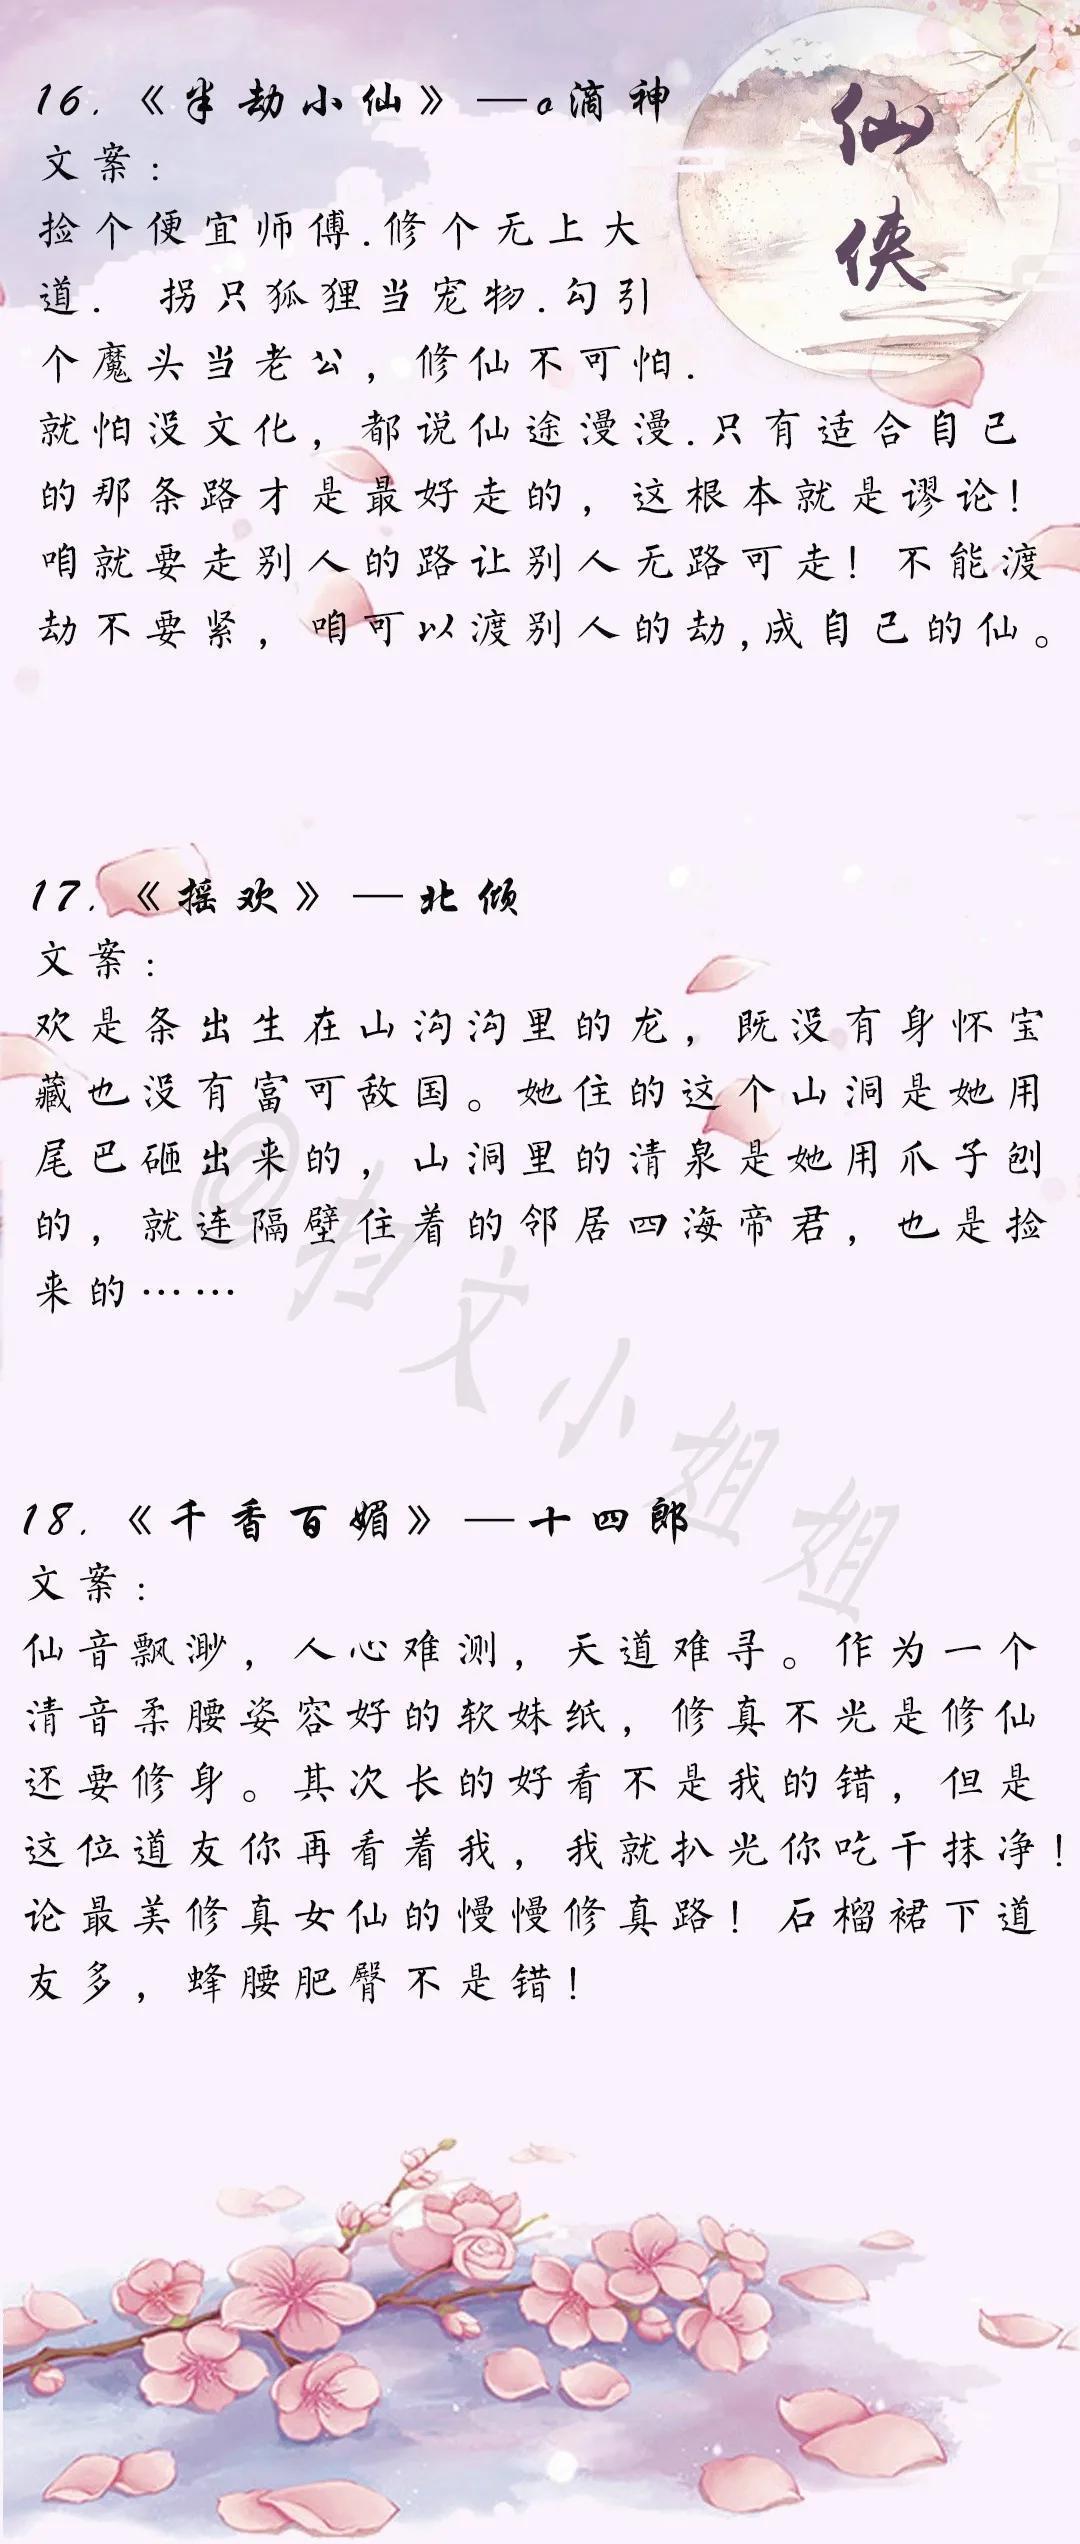 16.《半劫小仙》—a滴神
仙侠
文案:
捡个便宜师傅.修个无上大
道. 拐只狐狸当宠物.勾引
个魔头当老公，修仙不可怕.
就怕没文化，都说仙途漫漫.只有适合自己
的那条路才是最好走的，这根本就是谬论!
咱就要走别人的路让别人无路可走! 不能渡
劫不要紧，咱可以渡别人的劫,成自己的仙。
17.《摇欢》—北倾
文案:
欢是条出生在山沟沟里的龙，既没有身怀宝
藏也没有富可敌国。她住的这个山洞是她用
尾巴砸出来的，山洞里的清泉是她用爪子刨
的，就连隔壁住着的邻居四海帝君，也是捡
来的……
@扫文小姐姐
18.《千香百媚》—十四郎
文案:
仙音飘渺，人心难测，天道难寻。作为一个
清音柔腰姿容好的软妹纸，修真不光是修仙
还要修身。其次长的好看不是我的错，但是
这位道友你再看着我，我就扒光你吃干抹净!
论最美修真女仙的慢慢修真路! 石榴裙下道
友多，蜂腰肥臀不是错!